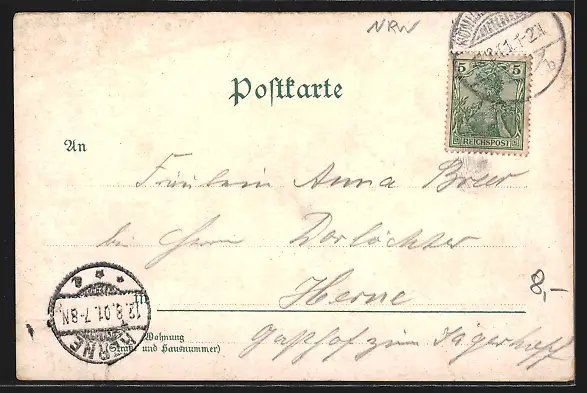 NRW
5 5
REICHSPOST
Postkarte
An
Fräulein Anna Breer
bei Herrn Dorlöchter
Herne
8,-
HERNE
12.8.01.7-8N
Wohnung
(Straße und Hausnummer)
Gasthof zum Jägerhof